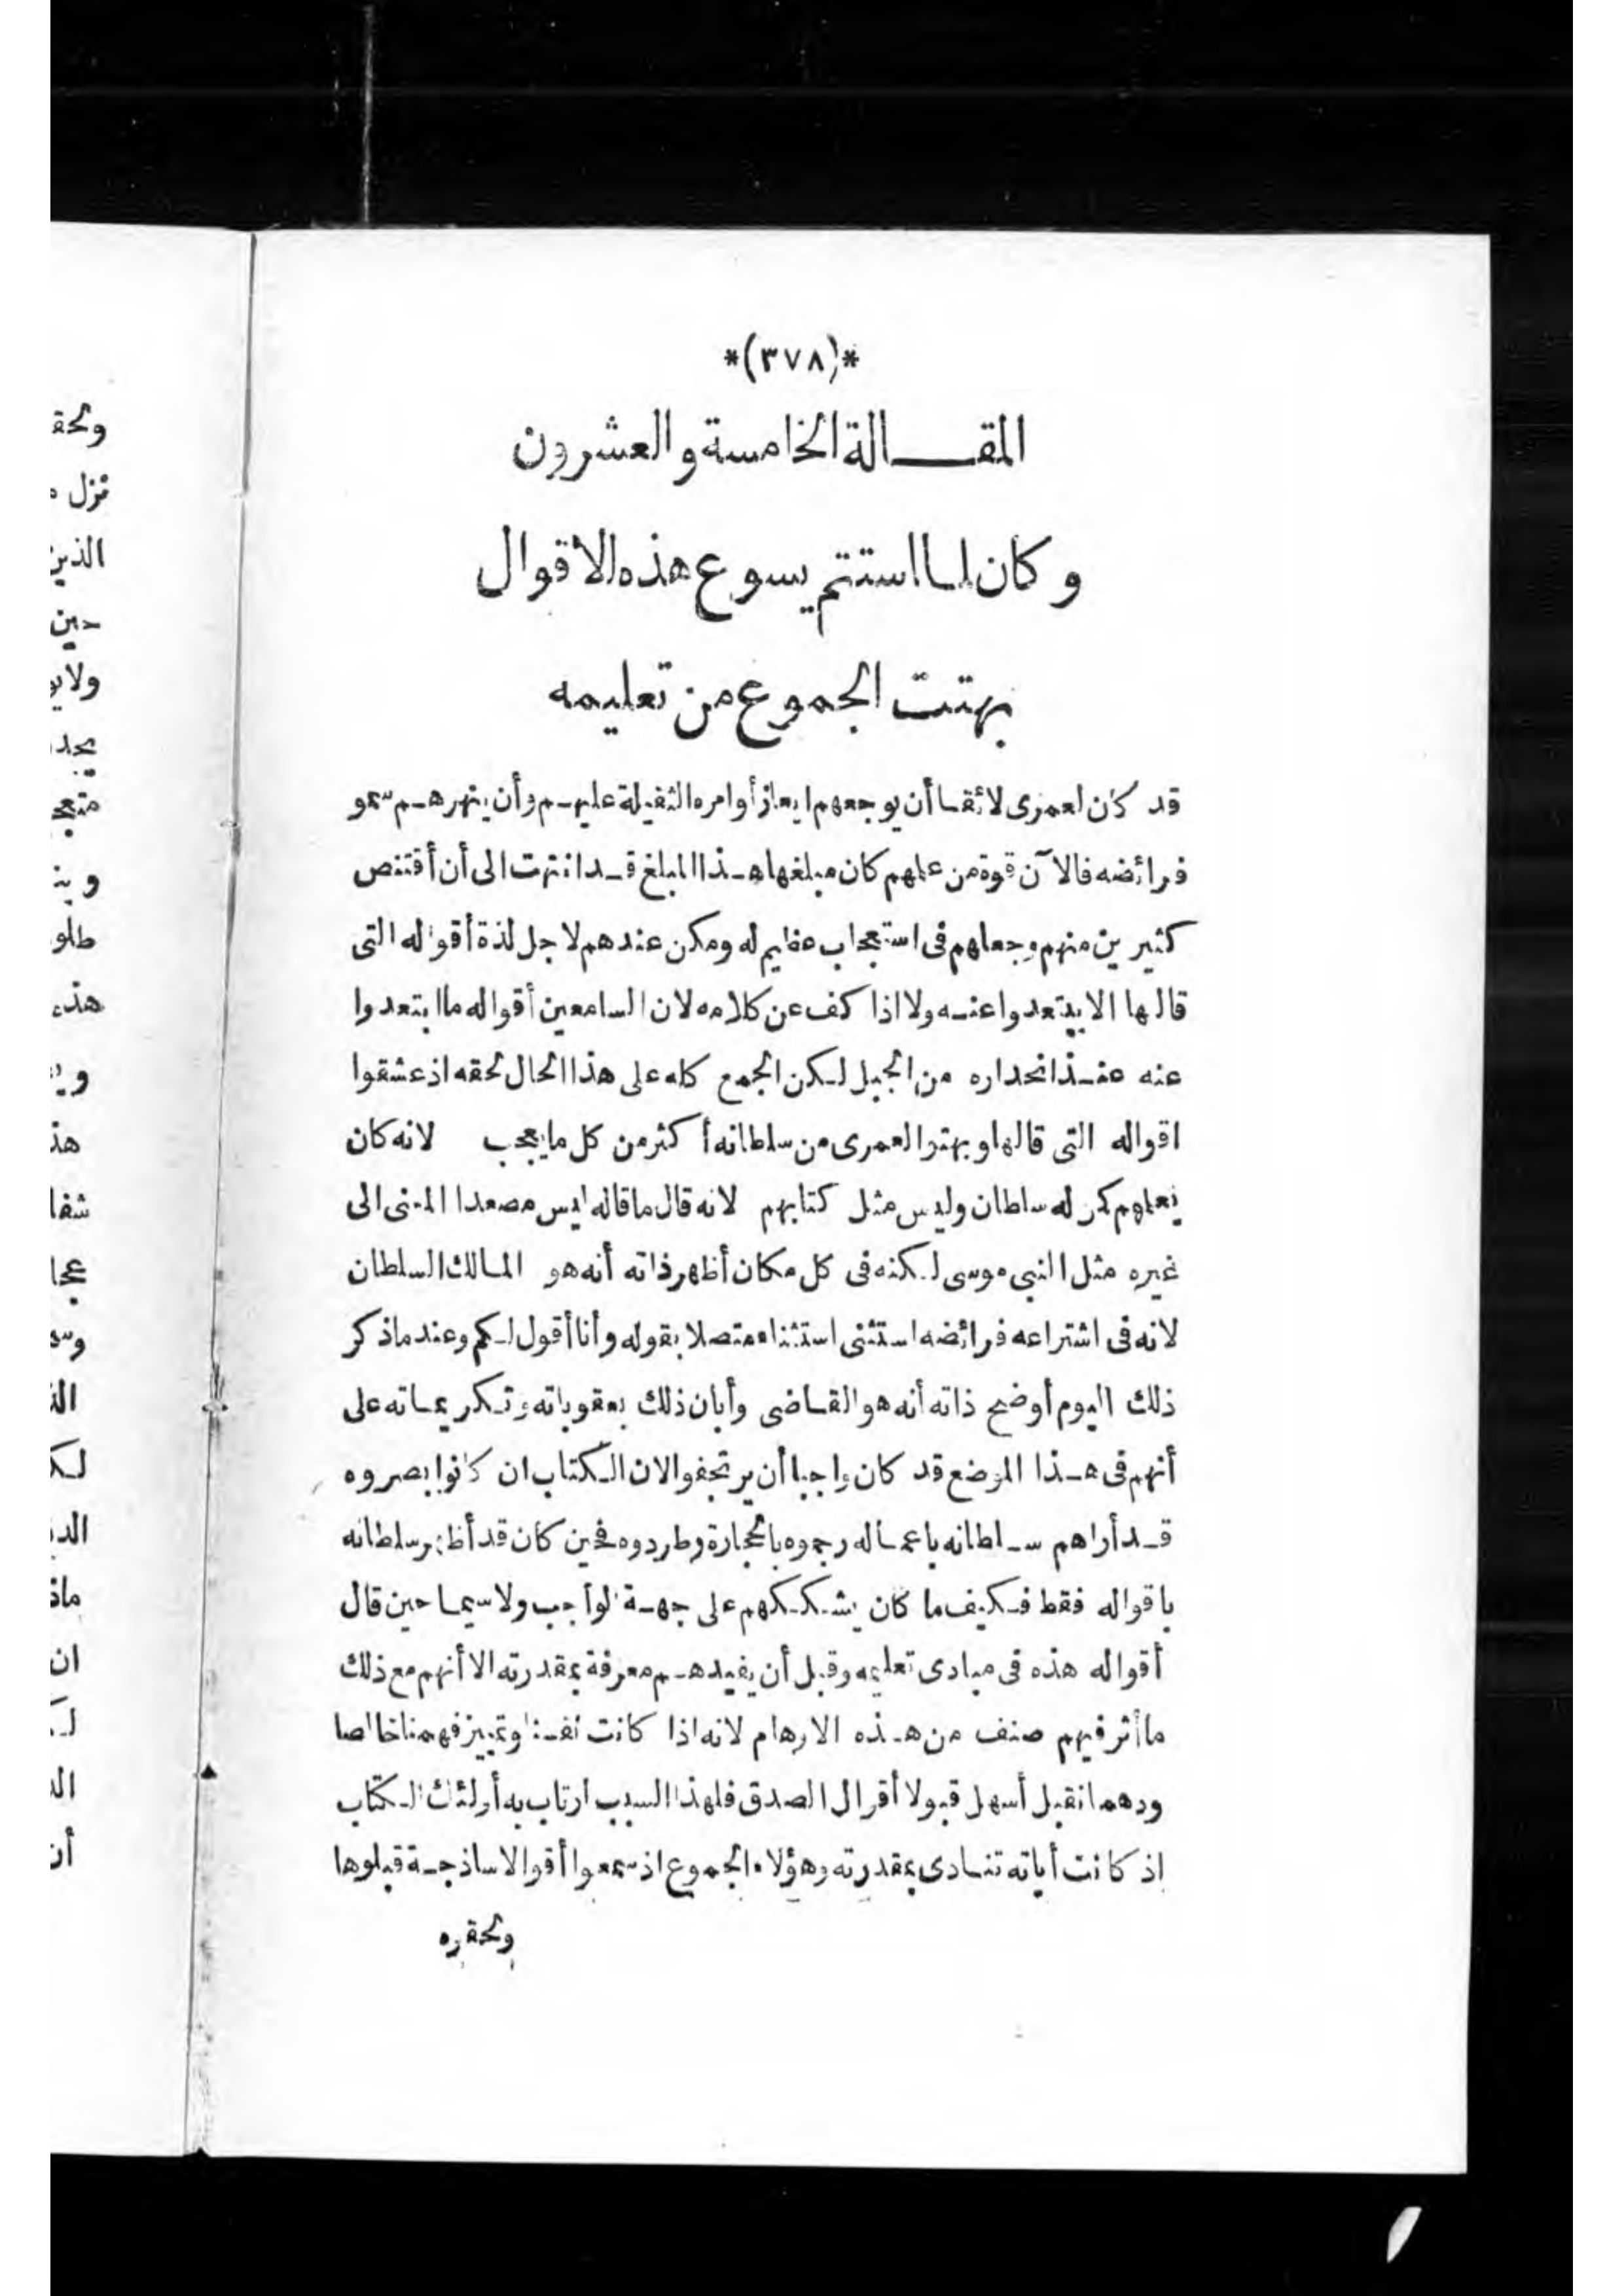 *(٣٧٨)*
المقـــالة الخامسة والعشرون
وكان لما استتم يسوع هذه الأقوال
بهتت الجموع من تعليمه
قد كان لعمرى لائقا أن يوجعهم ايعاز أوامره الثقيلة عليهم وأن ينهرهم سمو
فرائضه فالآن قوة من علهم كان مبلغها هذا المبلغ قد انتهت الى أن أقتنص
كثيرين منهم وجعلهم فى استعجاب عظيم له ومكن عندهم لاجل لذة أقواله التى
قالها الا يبتعدوا عنه ولا اذا كف عن كلامه لان السامعين أقواله ما ابتعدوا
عنه عند انحداره من الجبل لكن الجمع كله على هذا الحال لحقه اذ عشقوا
اقواله التى قالها وبهتوا لعمرى من سلطانه أكثر من كل ما يعجب لانه كان
يعلمهم كمن له سلطان وليس مثل كتابهم لانه قال ما قاله ليس مصعدا المعنى الى
غيره مثل النبى موسى لكنه فى كل مكان أظهر ذاته أنه هو المالك السلطان
لانه فى اشتراعه فرائضه استثنى استثناء متصلا بقوله وأنا أقول لكم وعند ما ذكر
ذلك اليوم أوضح ذاته أنه هو القاضى وأبان ذلك بعقوباته وتكريماته على
أنهم فى هذا الموضع قد كان واجبا أن يرتجفوا لان الكتاب ان كانوا بصروه
قد أراهم سلطانه باعماله رجموه بالحجارة وطردوه فحين كان قد أظهر سلطانه
باقواله فقط فكيف ما كان يشككهم على جهة الواجب ولا سيما حين قال
أقواله هذه فى مبادى تعليمه وقبل أن يفيدهم معرفة بمقدرته الا أنهم مع ذلك
ما أثر فيهم صنف من هذه الاوهام لانه اذا كانت نفسنا وتمييز فهمنا خالصا
ودهما نقبل أسهل قبولا أقوال الصدق فلهذا السبب ارتاب به أولئك الكتاب
اذ كانت أياته تنادى بمقدرته وهؤلاء الجموع اذ سمعوا أقوالا ساذجة قبلوها
ولحقوه